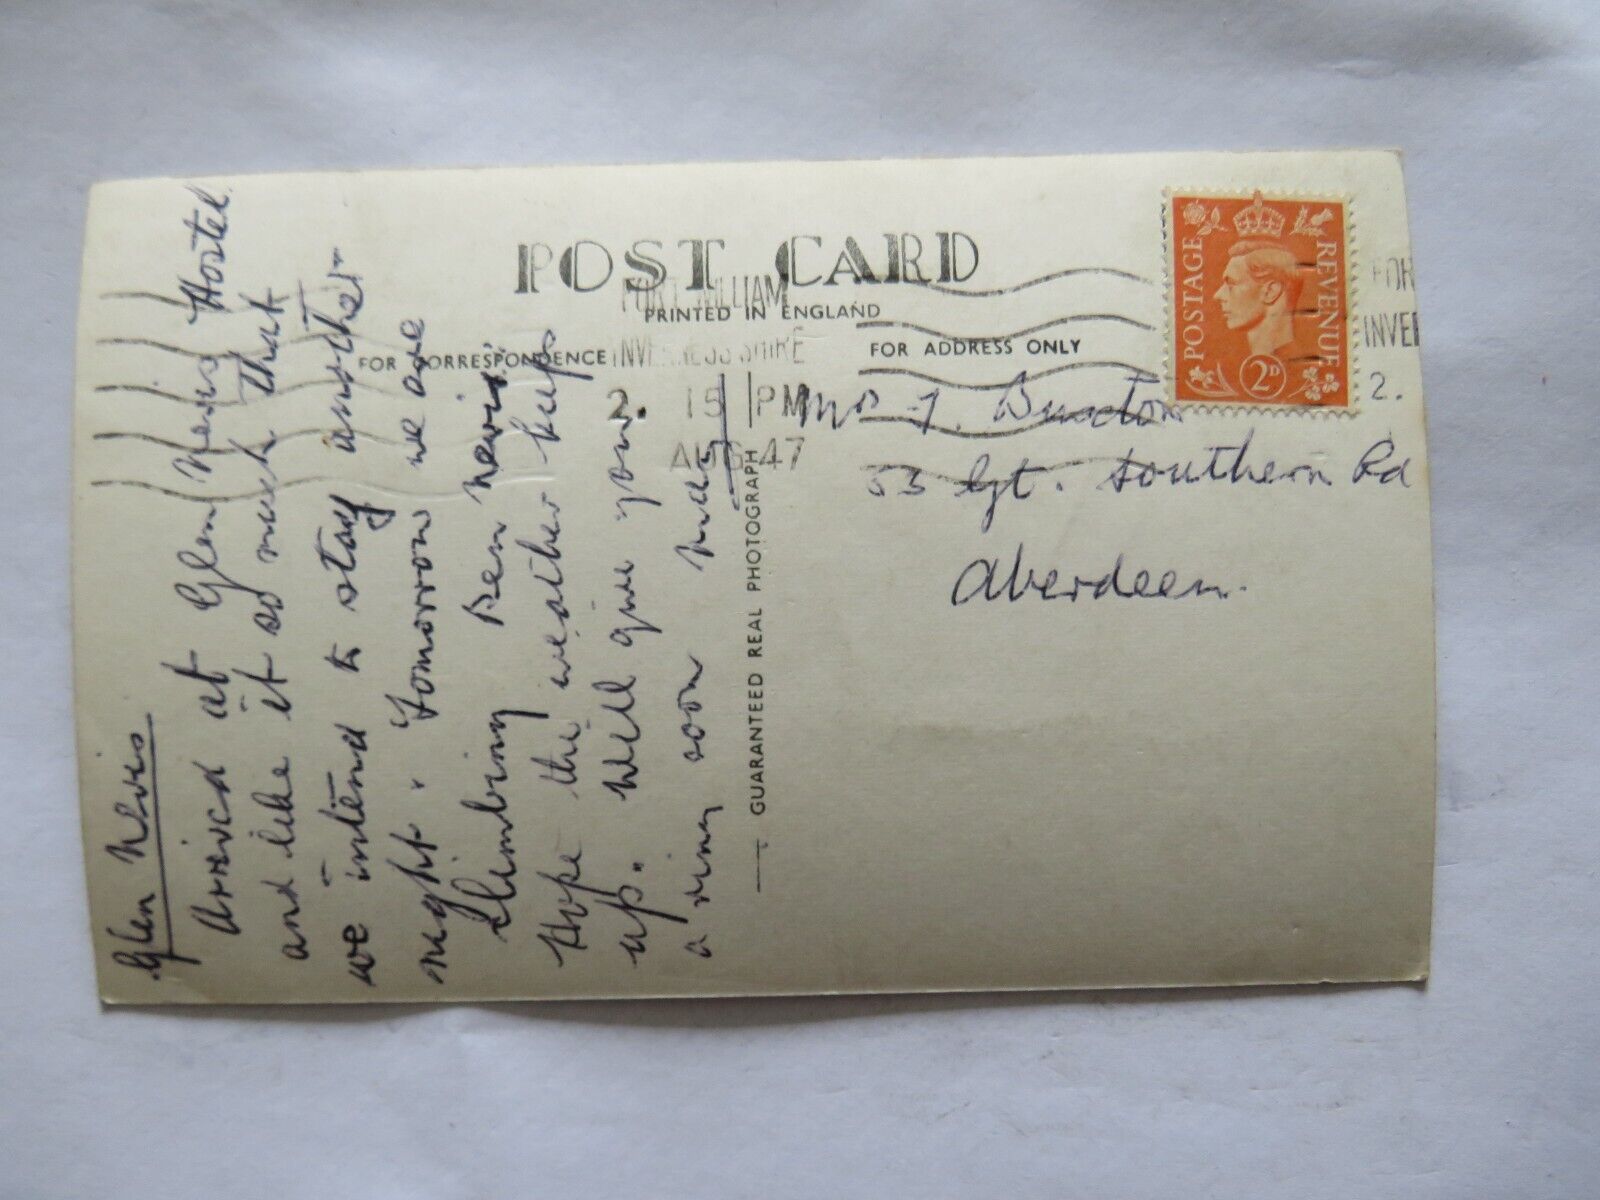 POST CARD
PRINTED IN ENGLAND
FOR CORRESPONDENCE
FOR ADDRESS ONLY
GUARANTEED REAL PHOTOGRAPH
Glen Nevis
Arrived at Glen Nevis Hostel
and like it so much that
we intend to stay another
night. Tomorrow we are
climbing Ben Nevis.
Hope the weather keeps
up. Will give you
a ring soon May
Mrs J. Buxton
53 Gt. Southern Rd
Aberdeen.
FORT WILLIAM
INVERNESS SHIRE
2. 15 PM
AUG 47
POSTAGE
REVENUE
2D
FOR
INVE
2.